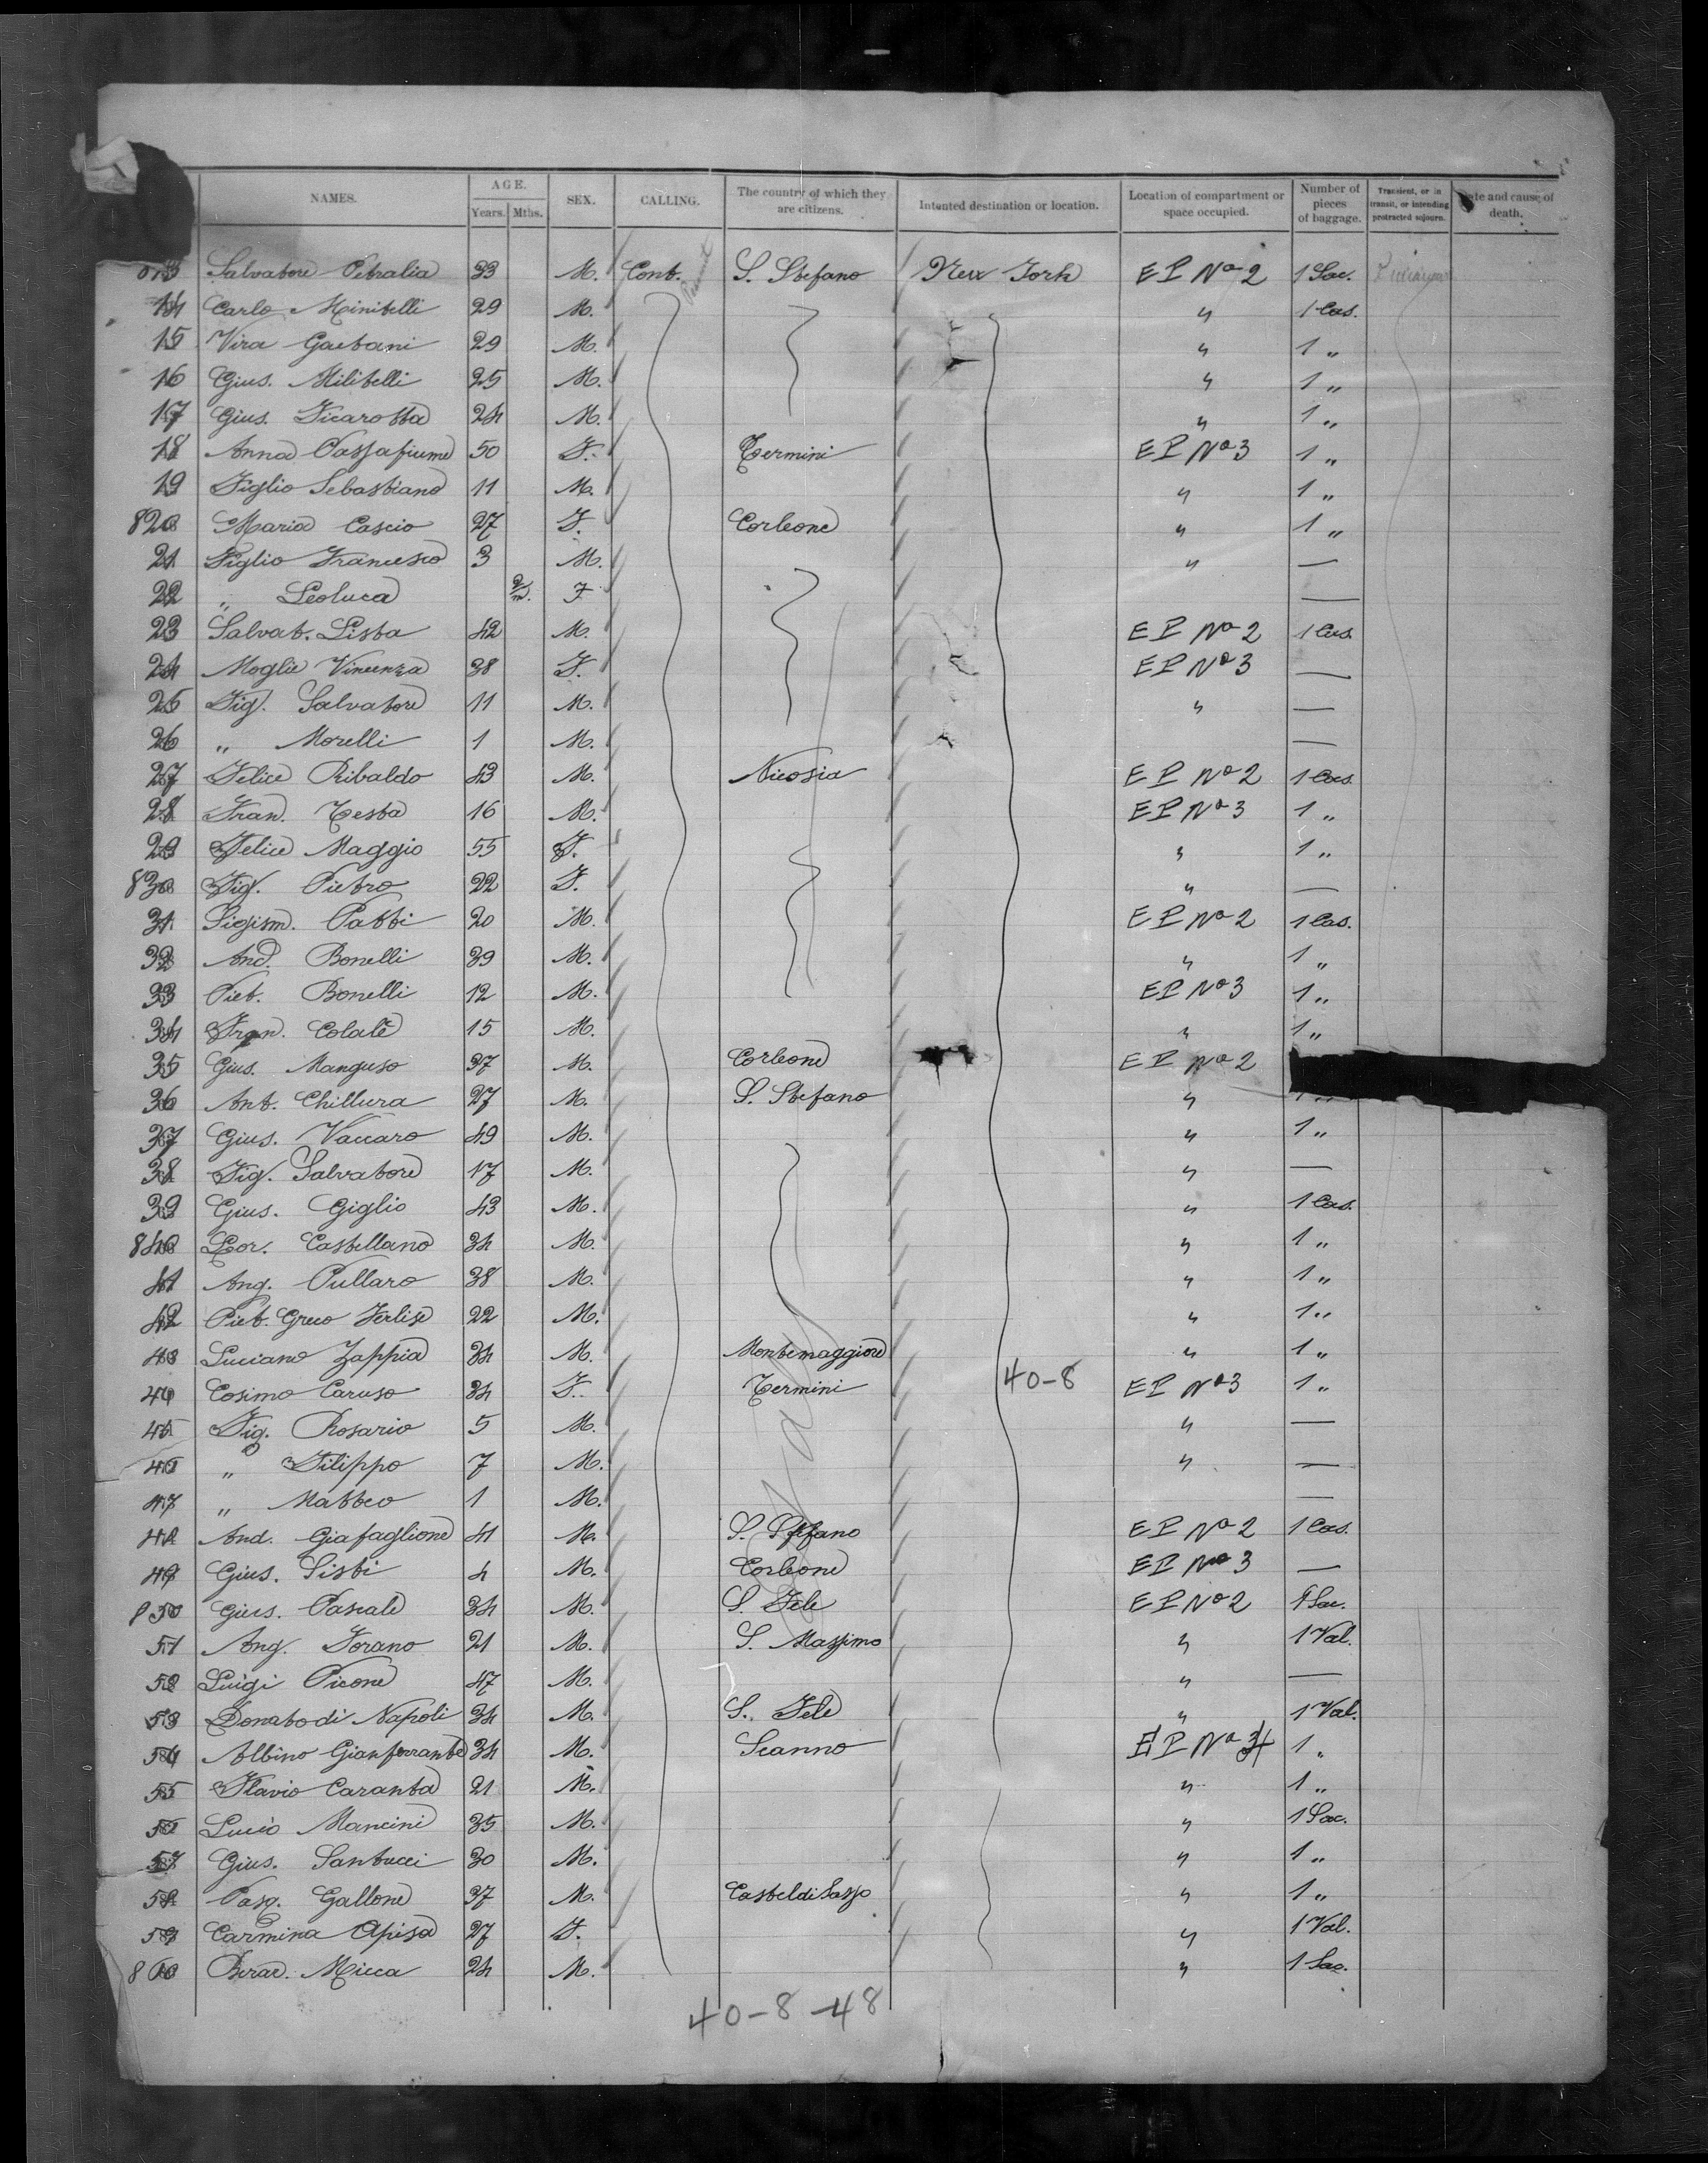 NAMES. AGE. Years. Mths. SEX. CALLING. The country of which they are citizens. Intented destination or location. Location of compartment or space occupied. Number of pieces of baggage. Transient, or in transit, or intending protracted sojourn. Date and cause of death.
813 Salvatore Petralia 33 M. Cont. S. Stefano New York EP No 2 1 Sac.
14 Carlo Minitelli 29 M. " 1 Cas.
15 Vira Gaetani 29 M. " 1 "
16 Gius. Militelli 25 M. " 1 "
17 Gius. Ficarotta 24 M. " 1 "
18 Anna Passafiume 50 F. Termini EP No 3 1 "
19 Figlio Sebastiano 11 M. " 1 "
820 Maria Cascio 27 F. Corleone " 1 "
21 Figlio Francesco 3 M. " —
22 " Leoluca F —
23 Salvat. Lista 42 M. EP No 2 1 Cas.
24 Moglie Vincenza 38 F. EP No 3 —
25 Fig. Salvatore 11 M. " —
26 " Morelli 1 M. —
27 Felice Ribaldo 43 M. Nicosia EP No 2 1 Cas.
28 Fran. Testa 16 M. EP No 3 1 "
29 Felice Maggio 55 F. " 1 "
830 Fig. Pietro 22 F. " —
31 Sigism. Patti 20 M. EP No 2 1 Cas.
32 And. Bonelli 39 M. " 1 "
33 Piet. Bonelli 12 M. EP No 3 1 "
34 Fran. Colale 15 M. " 1 "
35 Gius. Manguso 37 M. Corleone EP No 2
36 Ant. Chillura 27 M. S. Stefano " 1 "
37 Gius. Vaccaro 49 M. " 1 "
38 Fig. Salvatore 17 M. " —
39 Gius. Giglio 43 M. " 1 Cas.
840 Lor. Castellano 34 M. " 1 "
41 Ang. Pullaro 38 M. " 1 "
42 Piet. Greco Ferlise 22 M. " 1 "
43 Luciano Zappia 34 M. Montemaggiore " 1 "
44 Cosimo Caruso 34 F. Termini 40-8 EP No 3 1 "
45 Fig. Rosario 5 M. " —
46 " Filippo 7 M. " —
47 " Matteo 1 M. —
48 And. Giafaglione 41 M. S. Stefano EP No 2 1 Cas.
49 Gius. Listi 4 M. Corleone EP No 3 —
850 Gius. Pascale 34 M. S. Fele EP No 2 1 Sac.
51 Ang. Forano 21 M. S. Massimo " 1 Val.
52 Luigi Picone 47 M. " —
53 Donato di Napoli 34 M. S. Fele " 1 Val.
54 Albino Gianferrante 34 M. Scanno EP No 4 1 "
55 Flavio Caranta 21 M. " 1 "
56 Lucio Mancini 35 M. " 1 Sac.
57 Gius. Santucci 30 M. " 1 "
58 Pasq. Gallone 37 M. Casteldisasso " 1 "
59 Carmina Apisa 27 F. " 1 Val.
860 Berar. Micca 24 M. " 1 Sac.
40-8-48